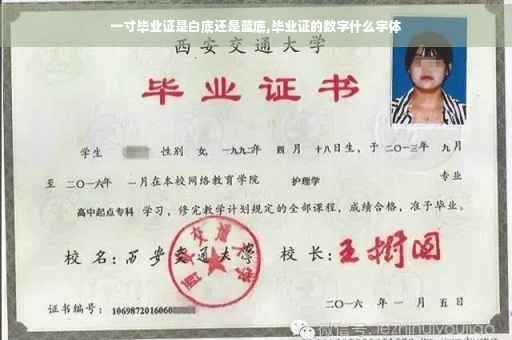 一寸毕业证是白底还是蓝底,毕业证的数字什么字体
西安交通大学
毕业证书
学生 性别 女, 一九九二年 四 月 十八日生, 于 二〇一三年 九月
至 二〇一六年 一月在本校网络教育学院 护理学 专业
高中起点专科 学习, 修完教学计划规定的全部课程, 成绩合格, 准予毕业。
校 名: 西安交通大学 校 长: 王树国
西安交通大学
证书编号: 1069872016060
二〇一六 年 一 月 五 日
微信号: jiezhihuiyoujiao